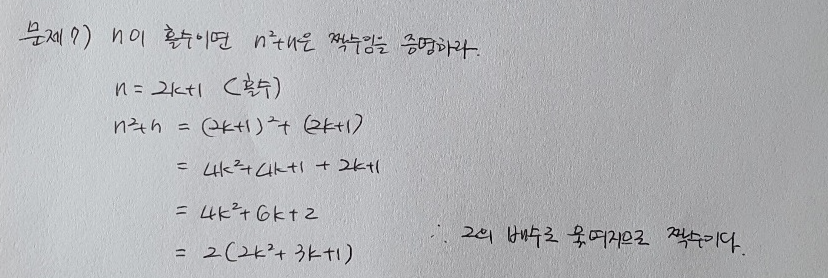 문제7) n이 홀수이면 n²+n은 짝수임을 증명하라.
n = 2k+1 (홀수)
n²+n = (2k+1)²+ (2k+1)
= 4k²+4k+1 + 2k+1
= 4k²+6k+2
= 2(2k²+3k+1)
∴ 2의 배수로 묶여지므로 짝수이다.